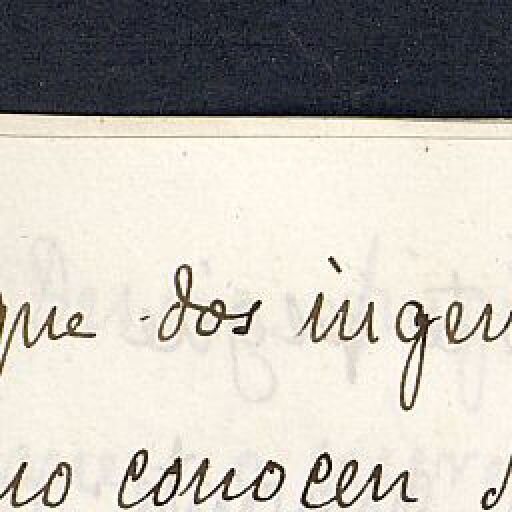 que dos ingen
no conocen